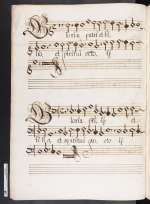 Gloria patri et fili
o, et spiritui scto,
Gloria pri, et fi
lio, et spiritui san cto